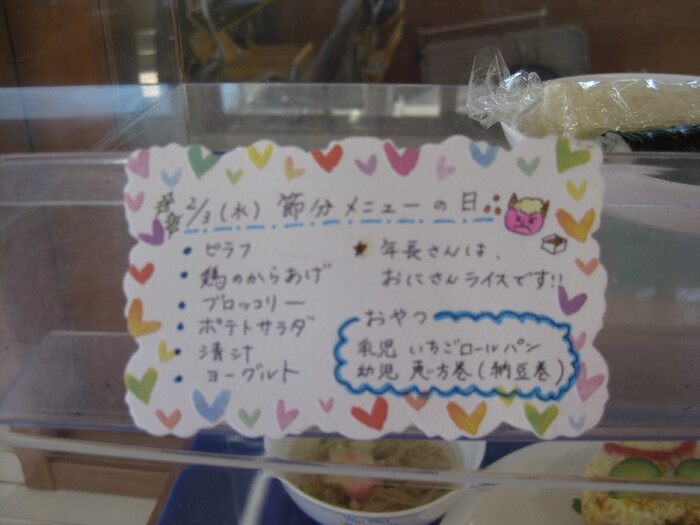 2/3(水) 節分メニューの日
• ピラフ
• 鶏のからあげ
• ブロッコリー
• ポテトサラダ
• 清汁
• ヨーグルト
★ 年長さんは、
おにさんライスです!!
おやつ
乳児 いちごロールパン
幼児 恵方巻(納豆巻)